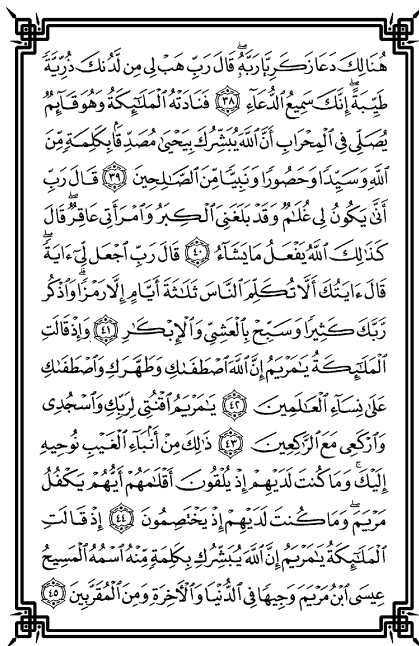 هُنَالِكَ دَعَا زَكَرِيَّا رَبَّهُۥۖ قَالَ رَبِّ هَبۡ لِي مِن لَّدُنكَ ذُرِّيَّةٗ
طَيِّبَةًۖ إِنَّكَ سَمِيعُ ٱلدُّعَآءِ ٣٨ فَنَادَتۡهُ ٱلۡمَلَٰٓئِكَةُ وَهُوَ قَآئِمٞ
يُصَلِّي فِي ٱلۡمِحۡرَابِ أَنَّ ٱللَّهَ يُبَشِّرُكَ بِيَحۡيَىٰ مُصَدِّقَۢا بِكَلِمَةٖ مِّنَ
ٱللَّهِ وَسَيِّدٗا وَحَصُورٗا وَنَبِيّٗا مِّنَ ٱلصَّٰلِحِينَ ٣٩ قَالَ رَبِّ
أَنَّىٰ يَكُونُ لِي غُلَٰمٞ وَقَدۡ بَلَغَنِيَ ٱلۡكِبَرُ وَٱمۡرَأَتِي عَاقِرٞۖ قَالَ
كَذَٰلِكَ ٱللَّهُ يَفۡعَلُ مَا يَشَآءُ ٤٠ قَالَ رَبِّ ٱجۡعَل لِّيٓ ءَايَةٗۖ
قَالَ ءَايَتُكَ أَلَّا تُكَلِّمَ ٱلنَّاسَ ثَلَٰثَةَ أَيَّامٍ إِلَّا رَمۡزٗاۗ وَٱذۡكُر
رَّبَّكَ كَثِيرٗا وَسَبِّحۡ بِٱلۡعَشِيِّ وَٱلۡإِبۡكَٰرِ ٤١ وَإِذۡ قَالَتِ
ٱلۡمَلَٰٓئِكَةُ يَٰمَرۡيَمُ إِنَّ ٱللَّهَ ٱصۡطَفَىٰكِ وَطَهَّرَكِ وَٱصۡطَفَىٰكِ
عَلَىٰ نِسَآءِ ٱلۡعَٰلَمِينَ ٤٢ يَٰمَرۡيَمُ ٱقۡنُتِي لِرَبِّكِ وَٱسۡجُدِي
وَٱرۡكَعِي مَعَ ٱلرَّٰكِعِينَ ٤٣ ذَٰلِكَ مِنۡ أَنۢبَآءِ ٱلۡغَيۡبِ نُوحِيهِ
إِلَيۡكَۚ وَمَا كُنتَ لَدَيۡهِمۡ إِذۡ يُلۡقُونَ أَقۡلَٰمَهُمۡ أَيُّهُمۡ يَكۡفُلُ
مَرۡيَمَ وَمَا كُنتَ لَدَيۡهِمۡ إِذۡ يَخۡتَصِمُونَ ٤٤ إِذۡ قَالَتِ
ٱلۡمَلَٰٓئِكَةُ يَٰمَرۡيَمُ إِنَّ ٱللَّهَ يُبَشِّرُكِ بِكَلِمَةٖ مِّنۡهُ ٱسۡمُهُ ٱلۡمَسِيحُ
عِيسَى ٱبۡنُ مَرۡيَمَ وَجِيهٗا فِي ٱلدُّنۡيَا وَٱلۡأٓخِرَةِ وَمِنَ ٱلۡمُقَرَّبِينَ ٤٥